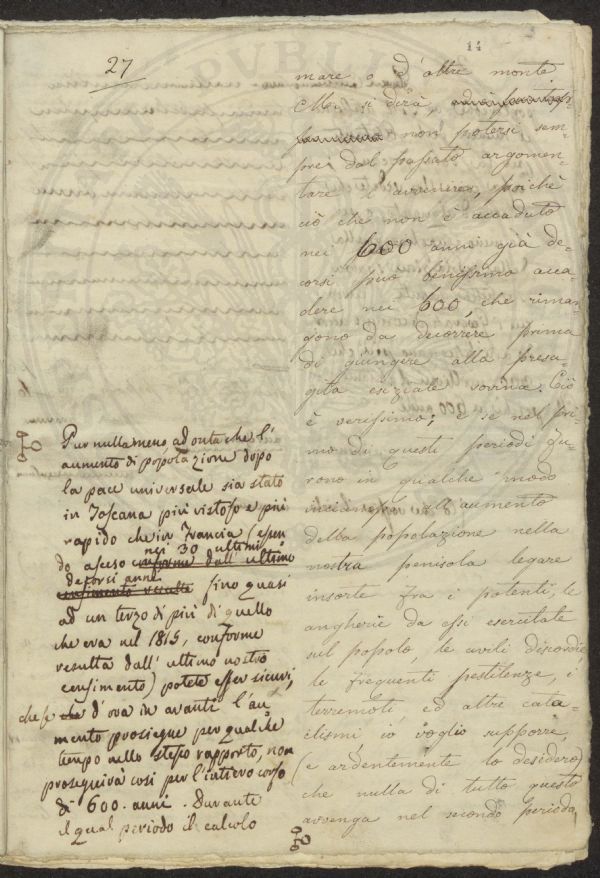 27
14
mare o d'altre monte
Mi si dirà,
non potersi sem-
pre dal passato argomen-
tare l'avvenire, poichè
ciò che non è accaduto
nei 600 anni già de-
corsi può benissimo acca-
dere nei 600, che riman-
gono da decorrere prima
di giungere alla presa-
gita esiziale rovina. Ciò
è verissimo; e se nel pri-
mo di questi periodi fu-
rono in qualche modo
all'aumento
della popolazione nella
nostra penisola le gare
insorte fra i potenti, le
angherie da essi esercitate
sul popolo, le civili discordie
le frequenti pestilenze, i
terremoti ed altre cata-
clismi io voglio supporre,
(e ardentemente lo desidero)
che nulla di tutto questo
avvenga nel secondo periodo,
Pur nulla meno ad onta che l'
aumento di popolazione dopo
la pace universale sia stato
in Toscana più vistoso e più
rapido che in Francia (essen
do asceso conforme dall'ultimo
nei 30 ultimi
decorsi anni
censimento resulta fino quasi
ad un terzo di più di quello
che era nel 1815, conforme
resulta dall'ultimo nostro
censimento) potete esser sicuri,
che se che d'ora in avanti l'au
mento prosiegue per qualche
tempo nello stesso rapporto, non
proseguirà così per l'intiero corso
di 600. anni. Durante
il qual periodo il calcolo